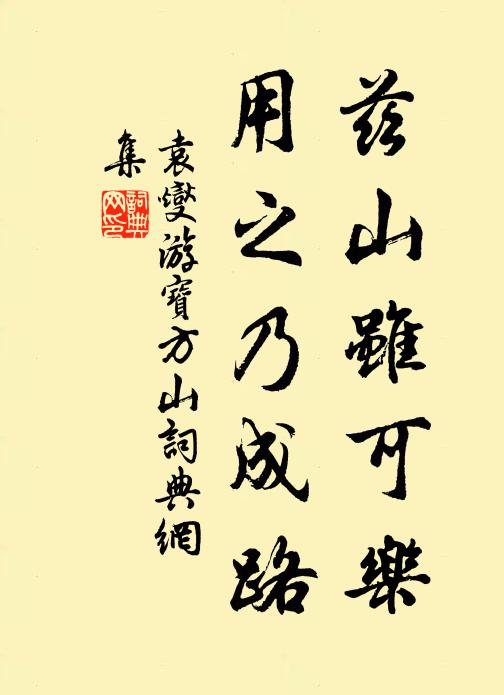 茲山雖可樂
用之乃成路
袁燮游寶方山詞典網
集
詞典
网印